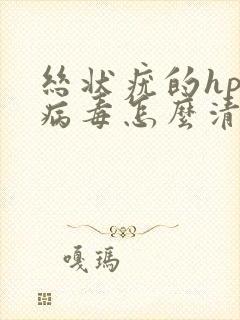 絲狀疣的hp
病毒怎麼清
嘎瑪